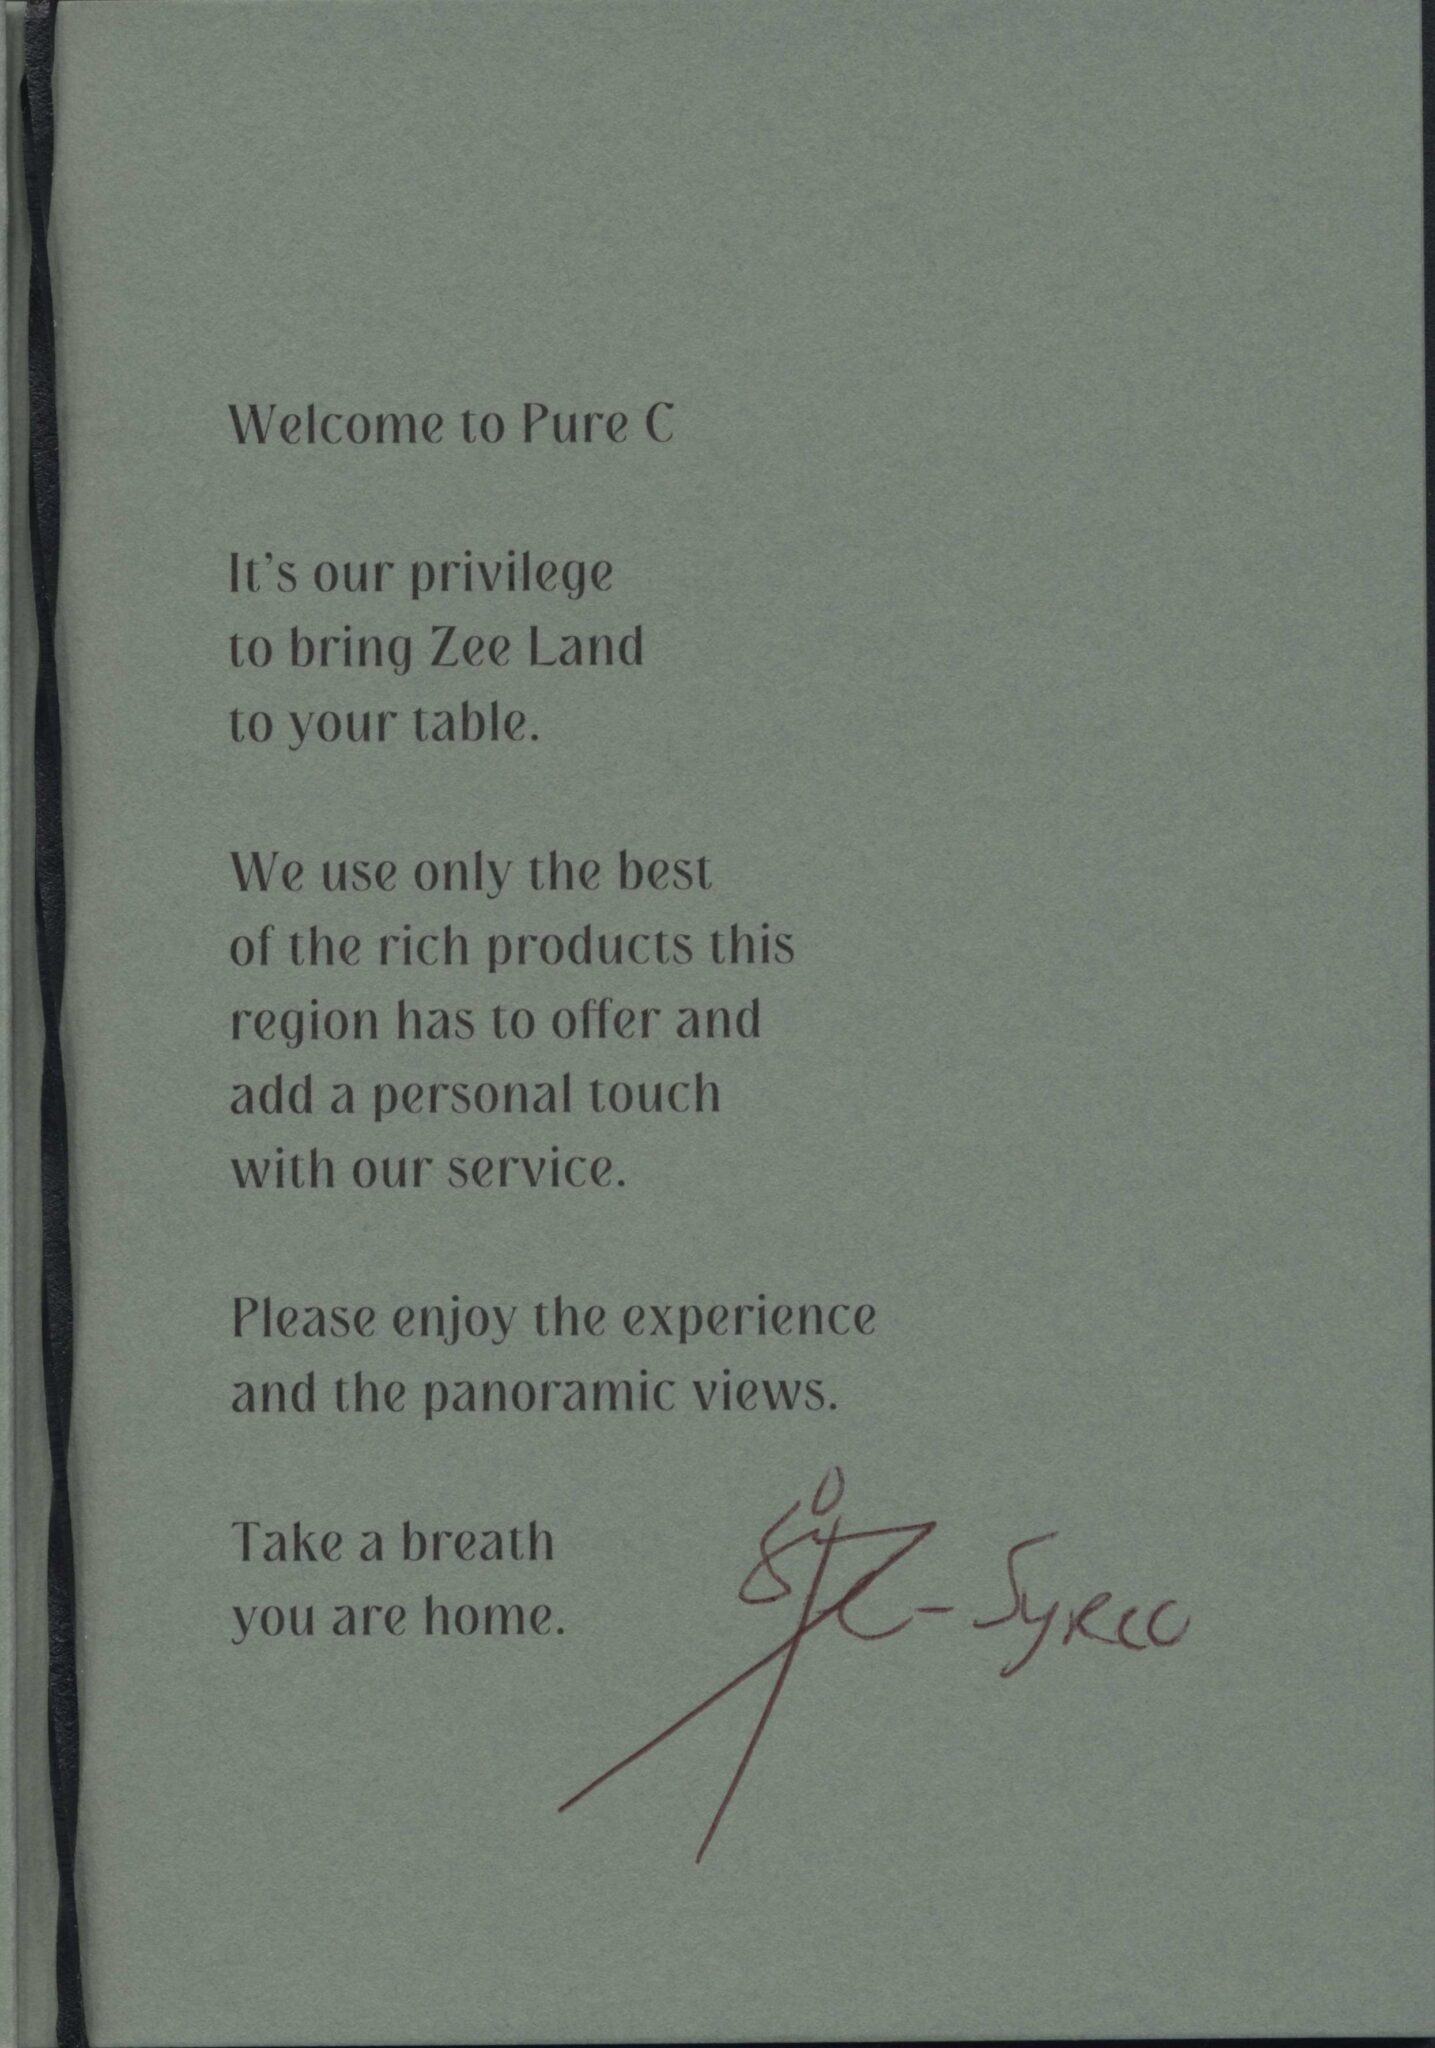 Welcome to Pure C
It's our privilege
to bring Zee Land
to your table.
We use only the best
of the rich products this
region has to offer and
add a personal touch
with our service.
Please enjoy the experience
and the panoramic views.
Take a breath
you are home.
- Syrco